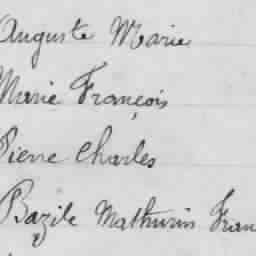 Auguste Marie
Marie François
Pierre Charles
Bazile Mathurin Fran